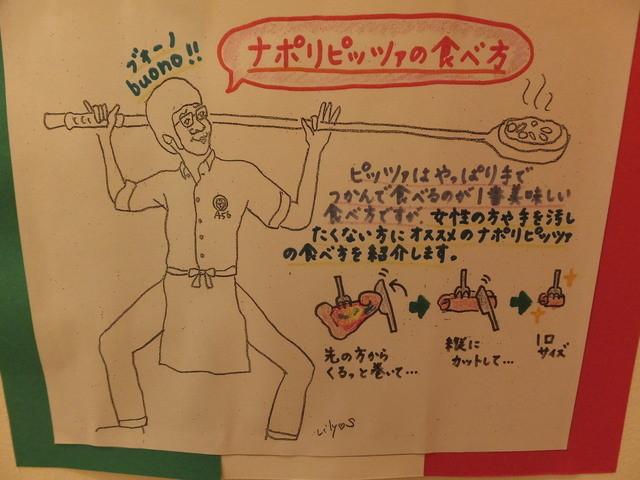 ナポリピッツァの食べ方
ブォーノ
buono!!
ピッツァはやっぱり手で
つかんで食べるのが1番美味しい
食べ方ですが、女性の方や手を汚し
たくない方にオススメのナポリピッツァ
の食べ方を紹介します。
先の方から
くるっと巻いて…
縦に
カットして…
1口
サイズ
Lily♡S